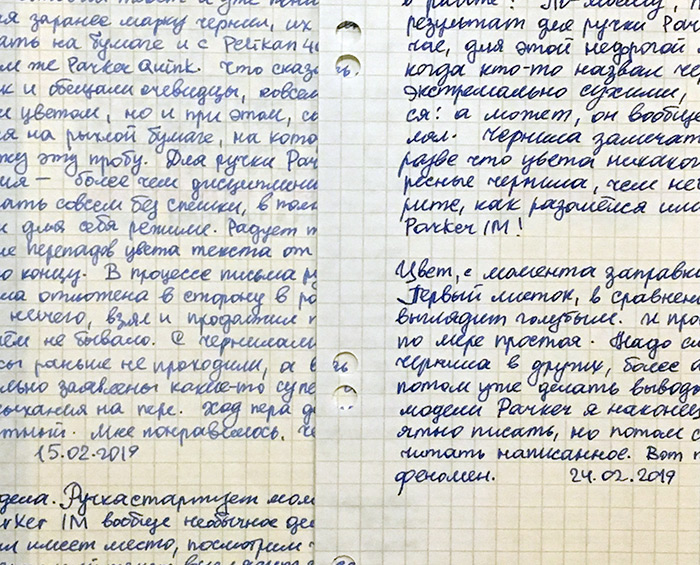 я заранее марку чернил, их
ать на бумаге и с Pelikan 4
м же Parker Quink. Что сказ
к и обещали очевидцы, совсем
и цветом, но и при этом, со
я на рыхлой бумаге, на кото
жу эту пробу. Для ручки Par
ия — более чем дисциплини
ать совсем без спешки, в пол
и для себя режиме. Радует
ие перепадов цвета текста от
о концу. В процессе письма ру
ла отложена в сторону в
ничего, взял и продолжил
ём не бывало. С чернилами
сы раньше не проходили, а в
льно заявлены какие-то супе
ыхания на пере. Ход пера д
тный. Мне понравилось. Че
15.02.2019
дела. Ручка стартует мом
arker IM вообще необычное де
ил имеет место, посмотрим
в работе! По-моему,
результат для ручки Par
чае, для этой недорогой
когда кто-то назвал чер
экстремально сухими,
ся: а может, он вообще
лял. Чернила замечат
разве что цвета никаког
ресные чернила, чем неч
рите, как разойдётся или
Parker IM!
Цвет, с момента заправки
Первый листок, в сравнен
выглядит голубым. И про
по мере простоя. Надо см
чернила в других, более
потом уже делать вывод
модели Parker я наконец
ятно писать, но потом с
читать написанное. Вот т
феномен. 24.02.2019